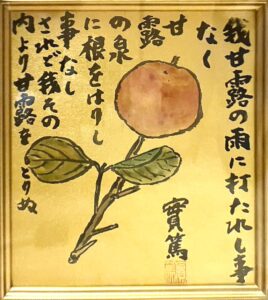 我甘露の雨に打たれし事
なく
甘
露
の泉
に根をはりし
事なし
されど我その
内より甘露をしとりぬ
實篤